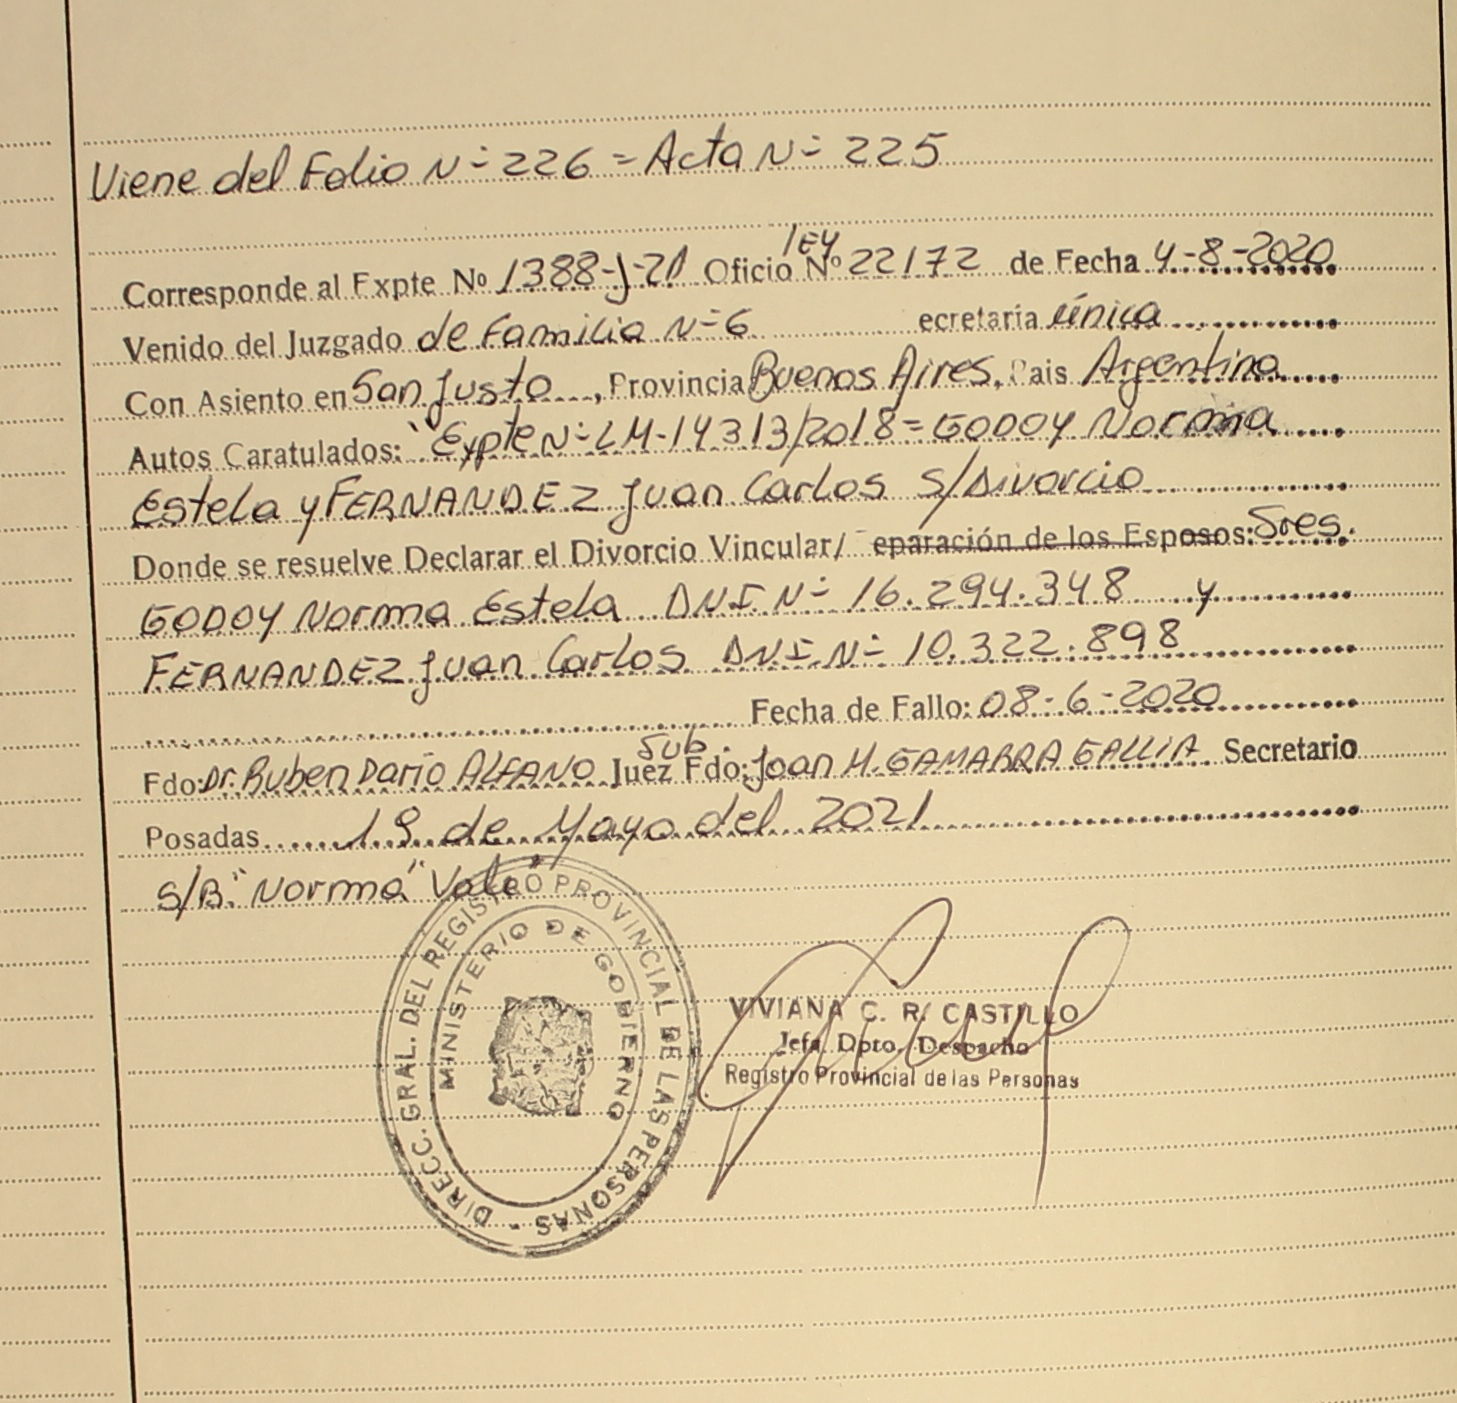 Viene del Folio N° 226 = Acta N° 225
Corresponde al Expte Nº 1388-J-21 Oficio ley Nº 22172 de Fecha 4-8-2020
Venido del Juzgado de Familia N° 6 ecretaria única
Con Asiento en San Justo, Provincia Buenos Aires, Pais Argentina
Autos Caratulados: "Expte N° LM-14313/2018 = GODOY Norma
Estela y FERNANDEZ Juan Carlos S/Divorcio
Donde se resuelve Declarar el Divorcio Vincular/ eparación de los Esposos: Sres.
GODOY Norma Estela DNI N° 16.294.348 y
FERNANDEZ Juan Carlos DNI N° 10.322.898
Fecha de Fallo: 08-6-2020
Fdo: Dr. Ruben Dario ALFANO Juez Sub. Fdo: Joan M. GAMARRA GALLIA Secretario
Posadas 19 de Mayo del 2021
S/B: "Norma" Vale"
DIRECC. GRAL. DEL REGISTRO PROVINCIAL DE LAS PERSONAS -
MINISTERIO DE GOBIERNO
VIVIANA C. R. CASTILLO
Jefa Dpto. Despacho
Registro Provincial de las Personas